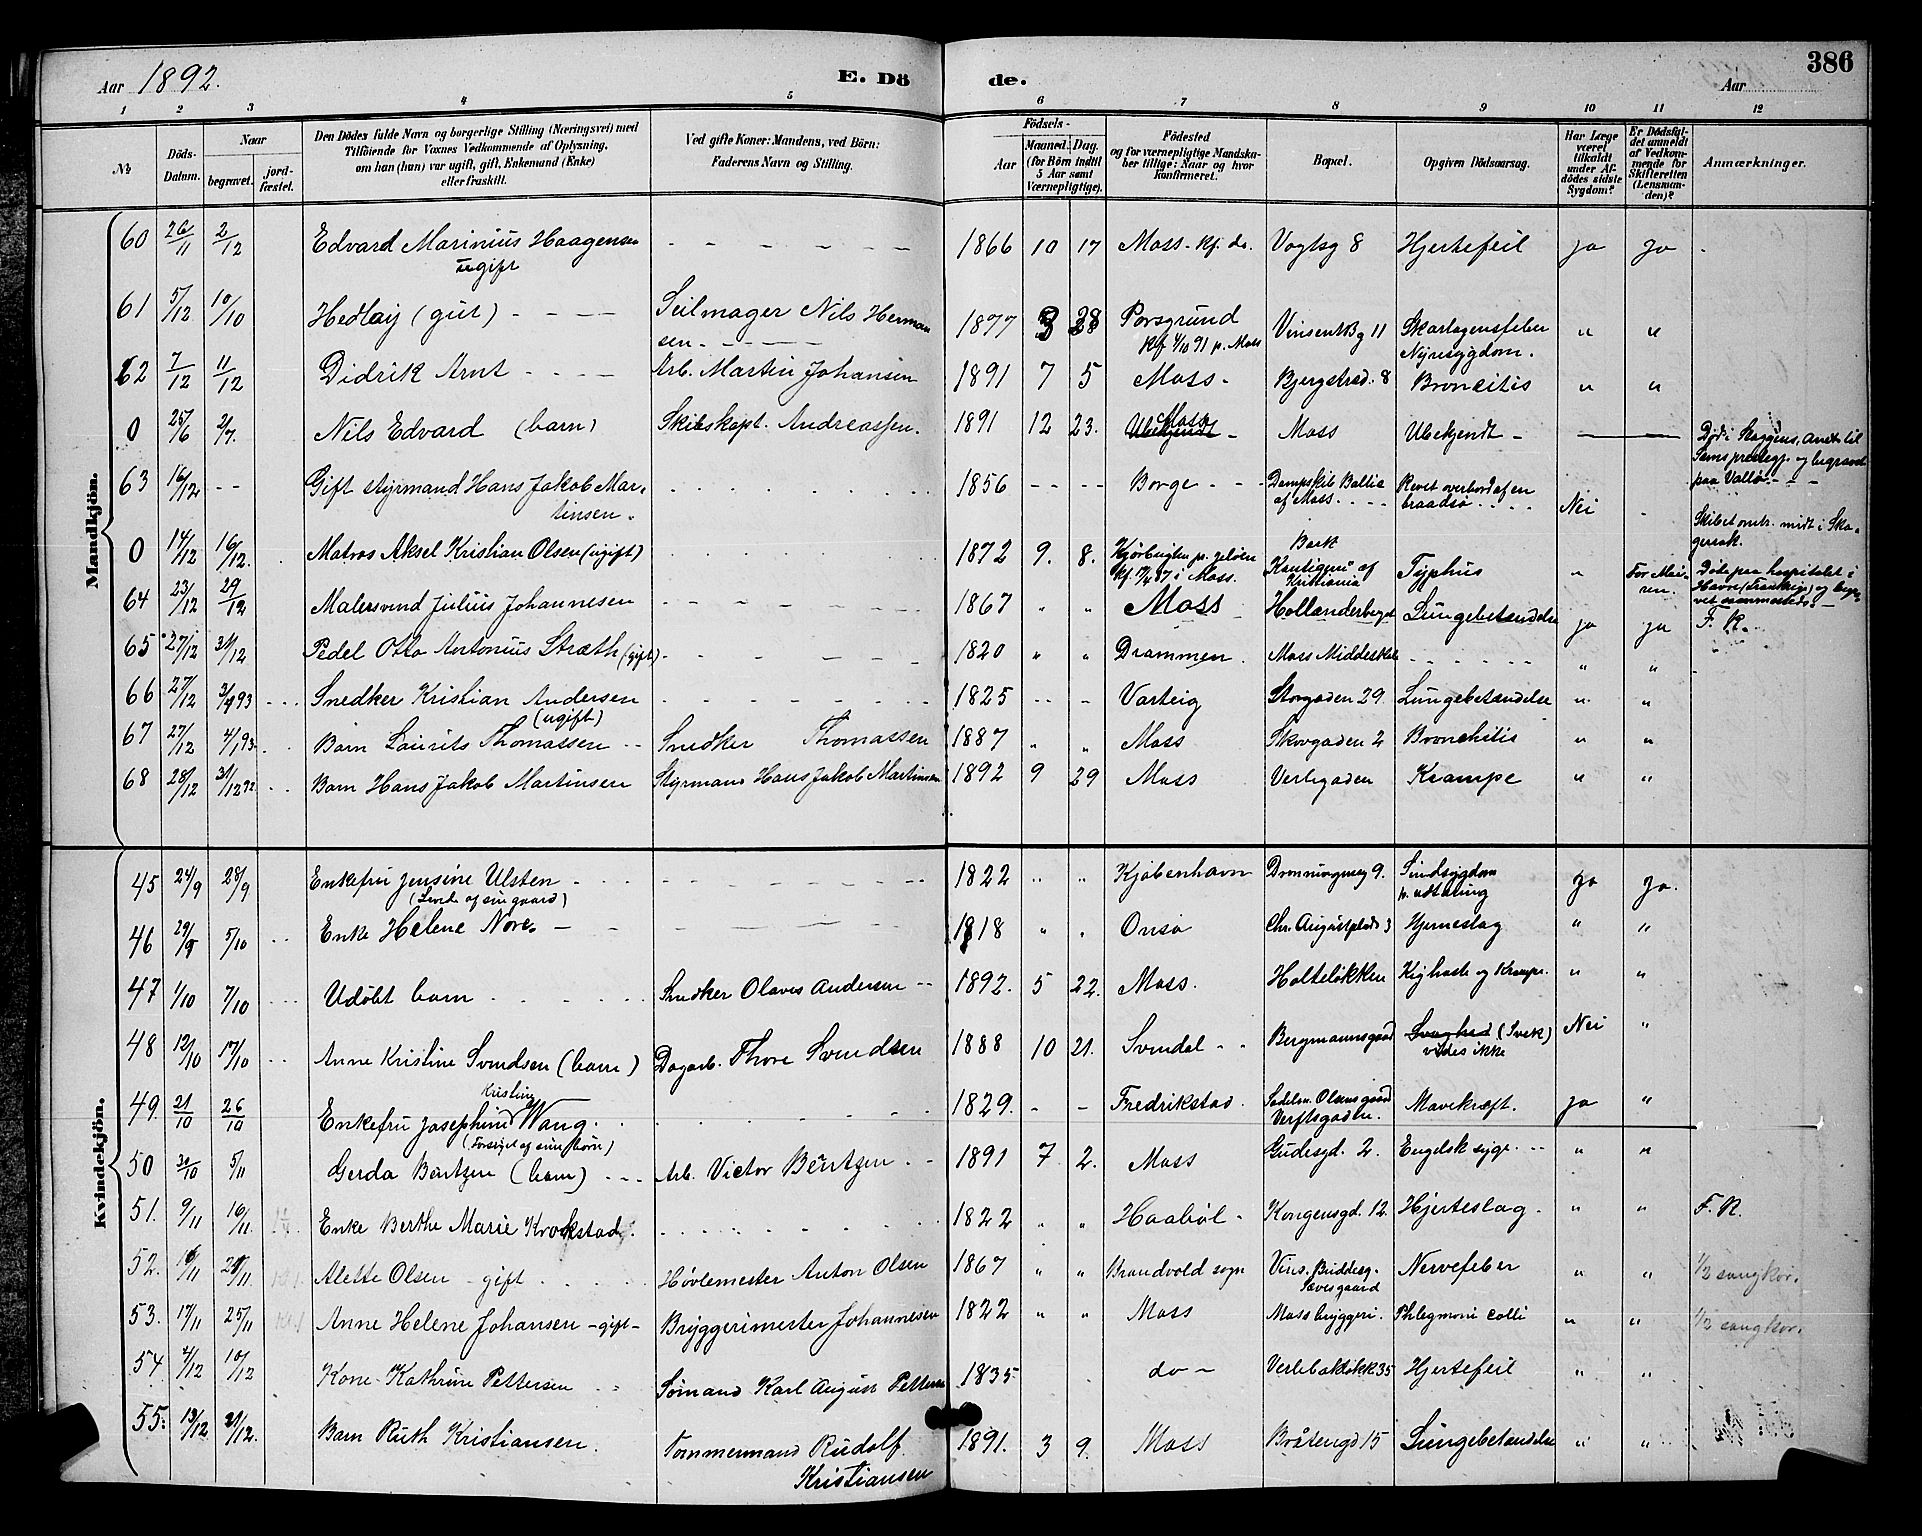 Aar 1892. E. Dö de. Aar 386
1 2 3 4 5 6 7 8 9 10 11 12
No
Döds-Datum.
Naar
begravet.
jord-fæstet.
Den Dödes fulde Navn og borgerlige Stilling (Næringsvei) med
Tilföiende for Voxnes Vedkommende af Oplysning,
om han (hun) var ugift, gift, Enkemand (Enke)
eller fraskilt.
Ved gifte Koner: Mandens, ved Börn:
Faderens Navn og Stilling.
Födsels-
Aar
Maaned. Dag.
(for Börn indtil
5 Aar samt
Værnepligtige).
Födested
og for værnepligtige Mandska-
ber tillige: Naar og hvor
konfirmeret.
Bopæl.
Opgiven Dödsaarsag.
Har Læge
været
tilkaldt
under Af-
dödes sidste
Sygdom?
Er Dödsfal-
det anmeldt
af Vedkom-
mende for
Skifteretten
(Lensman-
den)?
Anmærkninger.
Mandkjön.
60 26/11 2/12 Edvard Marinius Haagensen 1866 10 17 Moss - kf. do. Vogtsg 8 Hjertefeil ja ja
ugift
61 5/12 10/10 Hedley (gut) Seilmager Nils Herman 1877 3 28 Porsgrund Vincents Bg 11 Skarlagensfeber " "
sen. kf 4/10 91 p. Moss Nyresygdom.
62 7/12 11/12 Didrik Arnt Arb. Martin Johansen 1891 7 5 Moss - Bjergstræd. 8 Broncitis " "
0 25/6 2/7. Nils Edvard (barn) Skibskapt. Andreassen. 1891 12 23. Ubekjendt Moss Moss Ubekjendt - Død i
paa Vallø.
63 16/12 -- Gift styrmand Hans Jakob Mar- 1856 Borge Dampskib Baltic Revet overbord af en Nei
tensen. af Moss braadsø Skibet omtr. midt i Ska-
gerrak.
0 14/12 16/12. Matros Aksel Kristian Olsen (ugift) 1872 9. 8. Bark Typhus " Døde paa hospitalet i
kf. i Moss. af Kristiania Havre (Frankrige)
64 23/12 29/12 Malersvend Julius Johannesen 1867 " " Moss Lungebetændelse ja ja F. R.
65 27/12 31/12 Pedel Otto Antonius Stræth (gift) 1820 " " Drammen. Moss Middelskole " "
66 27/12 93 Snedker Kristian Andersen 1825 Varteig Storgaden 29 Lungebetændelse " "
(ugift)
67 27/12 4/1 93 Barn Laurits Thomassen Snedker Thomassen 1887 " " Moss Skovgaden 2 Bronchitis " "
68 28/12 31/12 92 Barn Hans Jakob Martinsen Styrmand Hans Jakob Martinsen 1892 9 29 Moss Verlegaden Krampe " "
Kvindekjön.
45 24/9 28/9 Enkefru Jensine Ulsten 1822 " " Kjøbenhavn Dronningensg 9. Sindsygdom Ja Ja.
(Levde af sin gaard) p. udtæring
46 29/9 5/10 Enke Helene Nore. 1818 " " Onsø Chr. Augustplads 3 Hjerneslag " "
47 1/10 7/10 Udøbt barn Snedker Olaves Andersen 1892. 5 22. Moss. Holteløkken Kighoste og Krampe. " "
48 12/10 17/10 Anne Kristine Svendsen (barn) Dagarb. Thore Svendsen 1888 10 21. Svindal Bergmannsgaard Svaghed (Svek) Nei "
vides ikke
49. 21/10 26/10 Enkefru Josephine Kristine Wang. 1829. - - Fredrikstad. Sadelm. Olsens gaard Mavekræft. Ja "
(Forsørget af sine børn) Verftsgaden.
50 30/10 5/11 Gerda Bentzen (barn) Arb. Victor Bentzen 1891 7 2. Moss Gudesgd. 2. Engelsk syge. " "
51. 9/11 16/11. Enke Berthe Marie Krokstad. 1822 " " Haabøl - Kongensgd. 12. Hjerteslag " " F. R.
52. 16/11 Alette Olsen - gift Høvlemester Anton Olsen 1867 " " Brandvold sogn Vins. Buddesg. Nervefeber " " 1/2 sangkor.
53. 17/11 25/11 Anne Helene Johansen - gift - Bryggerimester Johannesen 1822 " " Moss Moss bryggeri. Phlegmone colli " " 1/2 sangkor.
54. 4/12 10/12 Kone Kathrine Pettersen Sømand Karl August Pettersen 1835 do - Verlebakløkk 35 Hjertefeil " "
55. 13/12 21/12. Barn Ruth Kristiansen. Tømmermand Rudolf 1891. 3 9. Moss Bråtengd 15 Lungebetændelse " "
Kristiansen